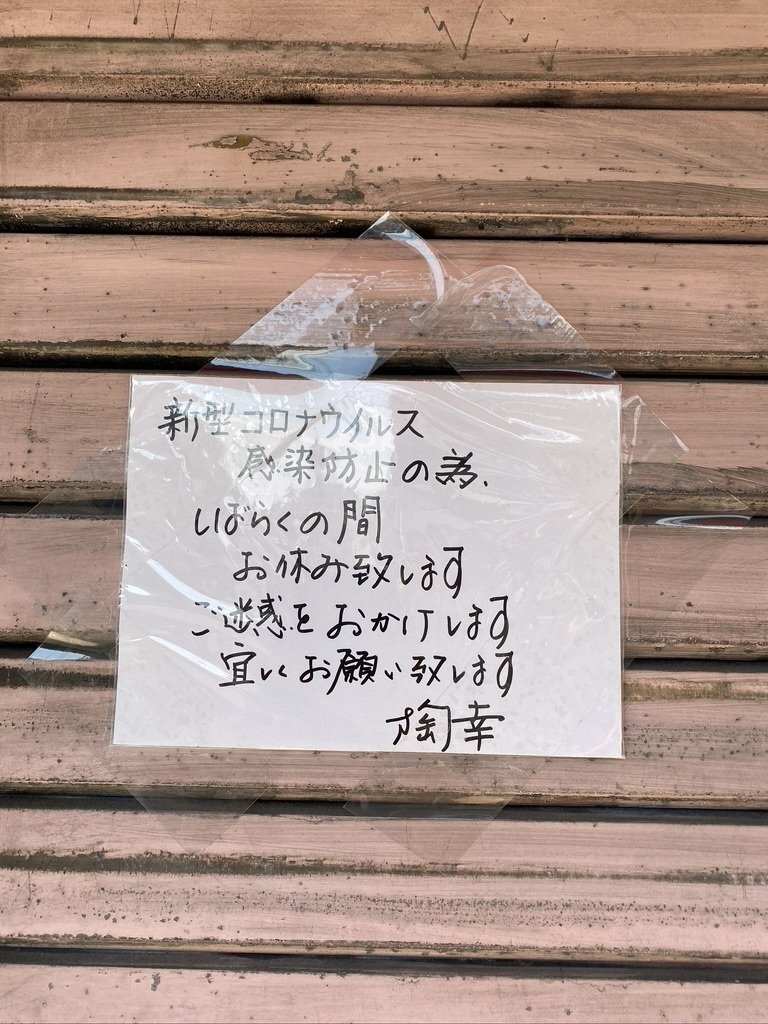 新型コロナウイルス
感染防止の為、
しばらくの間
お休み致します
ご迷惑をおかけします
宜しくお願い致します
陶幸